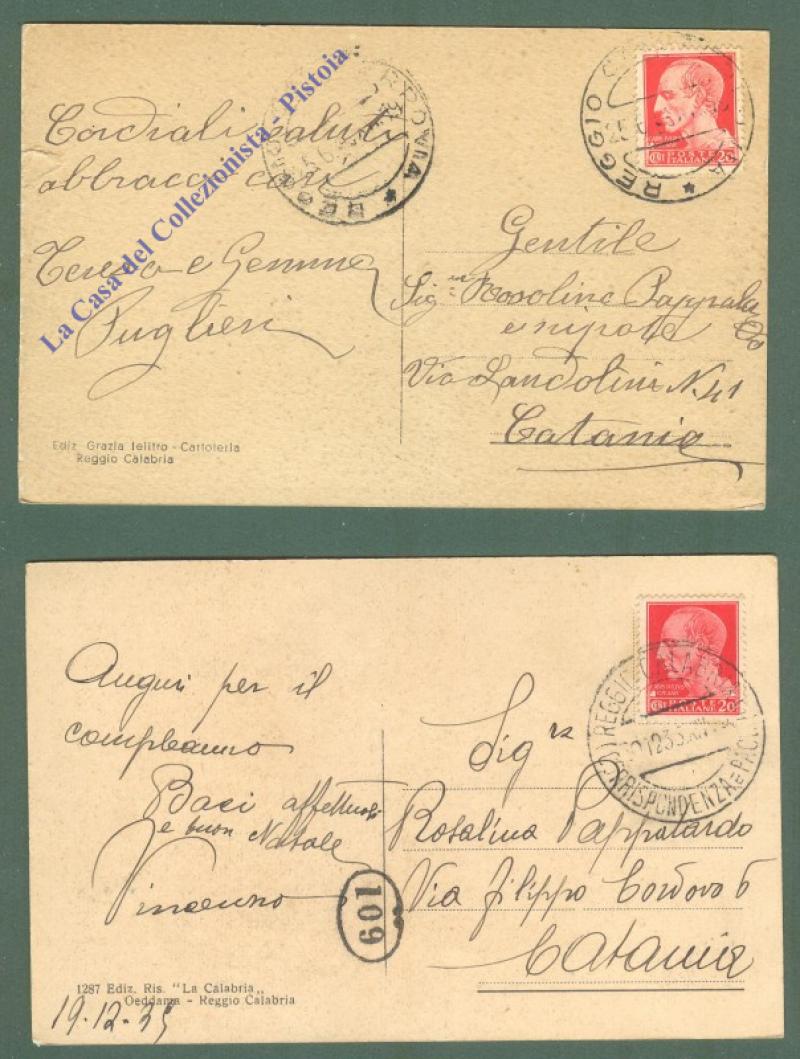 Cordiali saluti
abbracci cari
Teresa e Gemma
Puglieri
Ediz Grazia Ielitro - Cartoleria
Reggio Calabria
La Casa del Collezionista - Pistoia
REGGIO
REGGIO
POSTE
ITALIANE 20
Gentile
Sig.na Rosolina Pappalardo
e nipote
Via Landolini N. 41
Catania
Auguri per il
compleanno
Baci affettuosi
e buon Natale
Vincenzo
109
1287 Ediz. Ris. "La Calabria„
Oeddama - Reggio Calabria
19-12-35
POSTE
ITALIANE 20
REGGIO CALABRIA
CORRISPONDENZA E PACCHI
Sig ra
Rosalina Pappalardo
Via Filippo Cordova 6
Catania